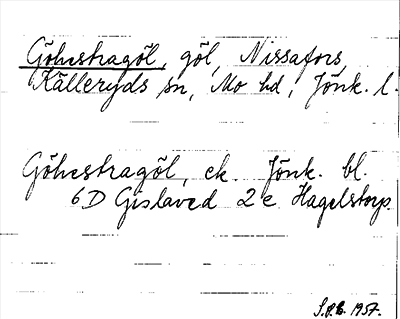 Göhestragöl, göl, Nissafors,
Källeryds sn, Mo hd, Jönk. l.
Göhestragöl, ek. Jönk. bl.
6D Gislaved 2e Hagelstorp.
S.P.B. 1957.